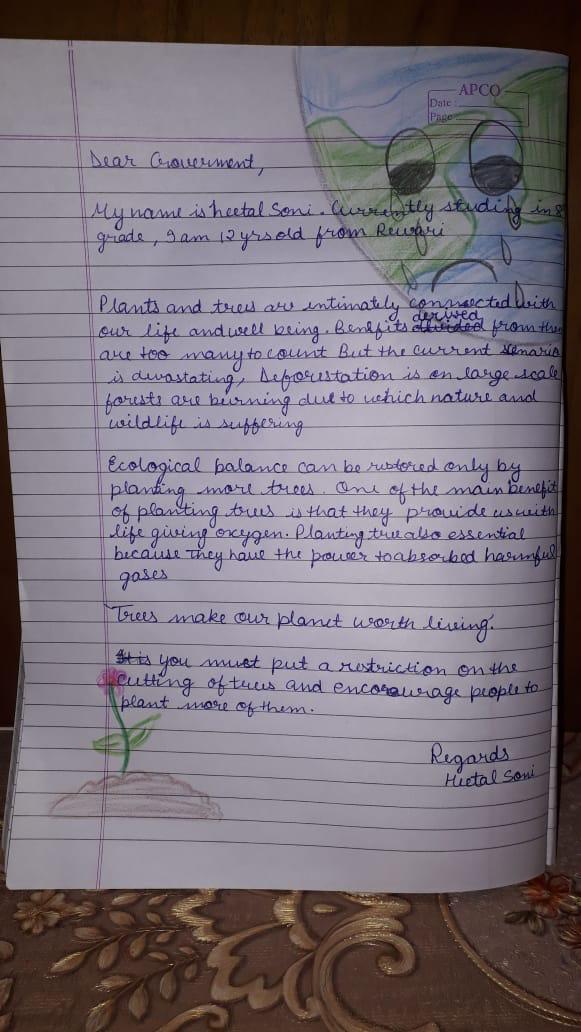 APCO
Date :
Page
Dear Goverment,
My name is heetal Soni. Currently studing in 8
grade, I am 12 yrs old from Rewari
Plants and trees are intimately connected with
our life and well being. Benefits derived from them
are too many to count But the current senario
is devastating, Deforestation is on large scale
forests are beurning due to which nature and
wildlife is suffering
Ecological balance can be restored only by
planting more trees. One of the main benefit
of planting trees is that they provide us with
life giving oxygen. Planting tree also essential
because they have the power to absorbed harmful
gases
Trees make our planet worth living.
It is you must put a restriction on the
cutting of trees and encourage people to
plant more of them.
Regards
Heetal Soni